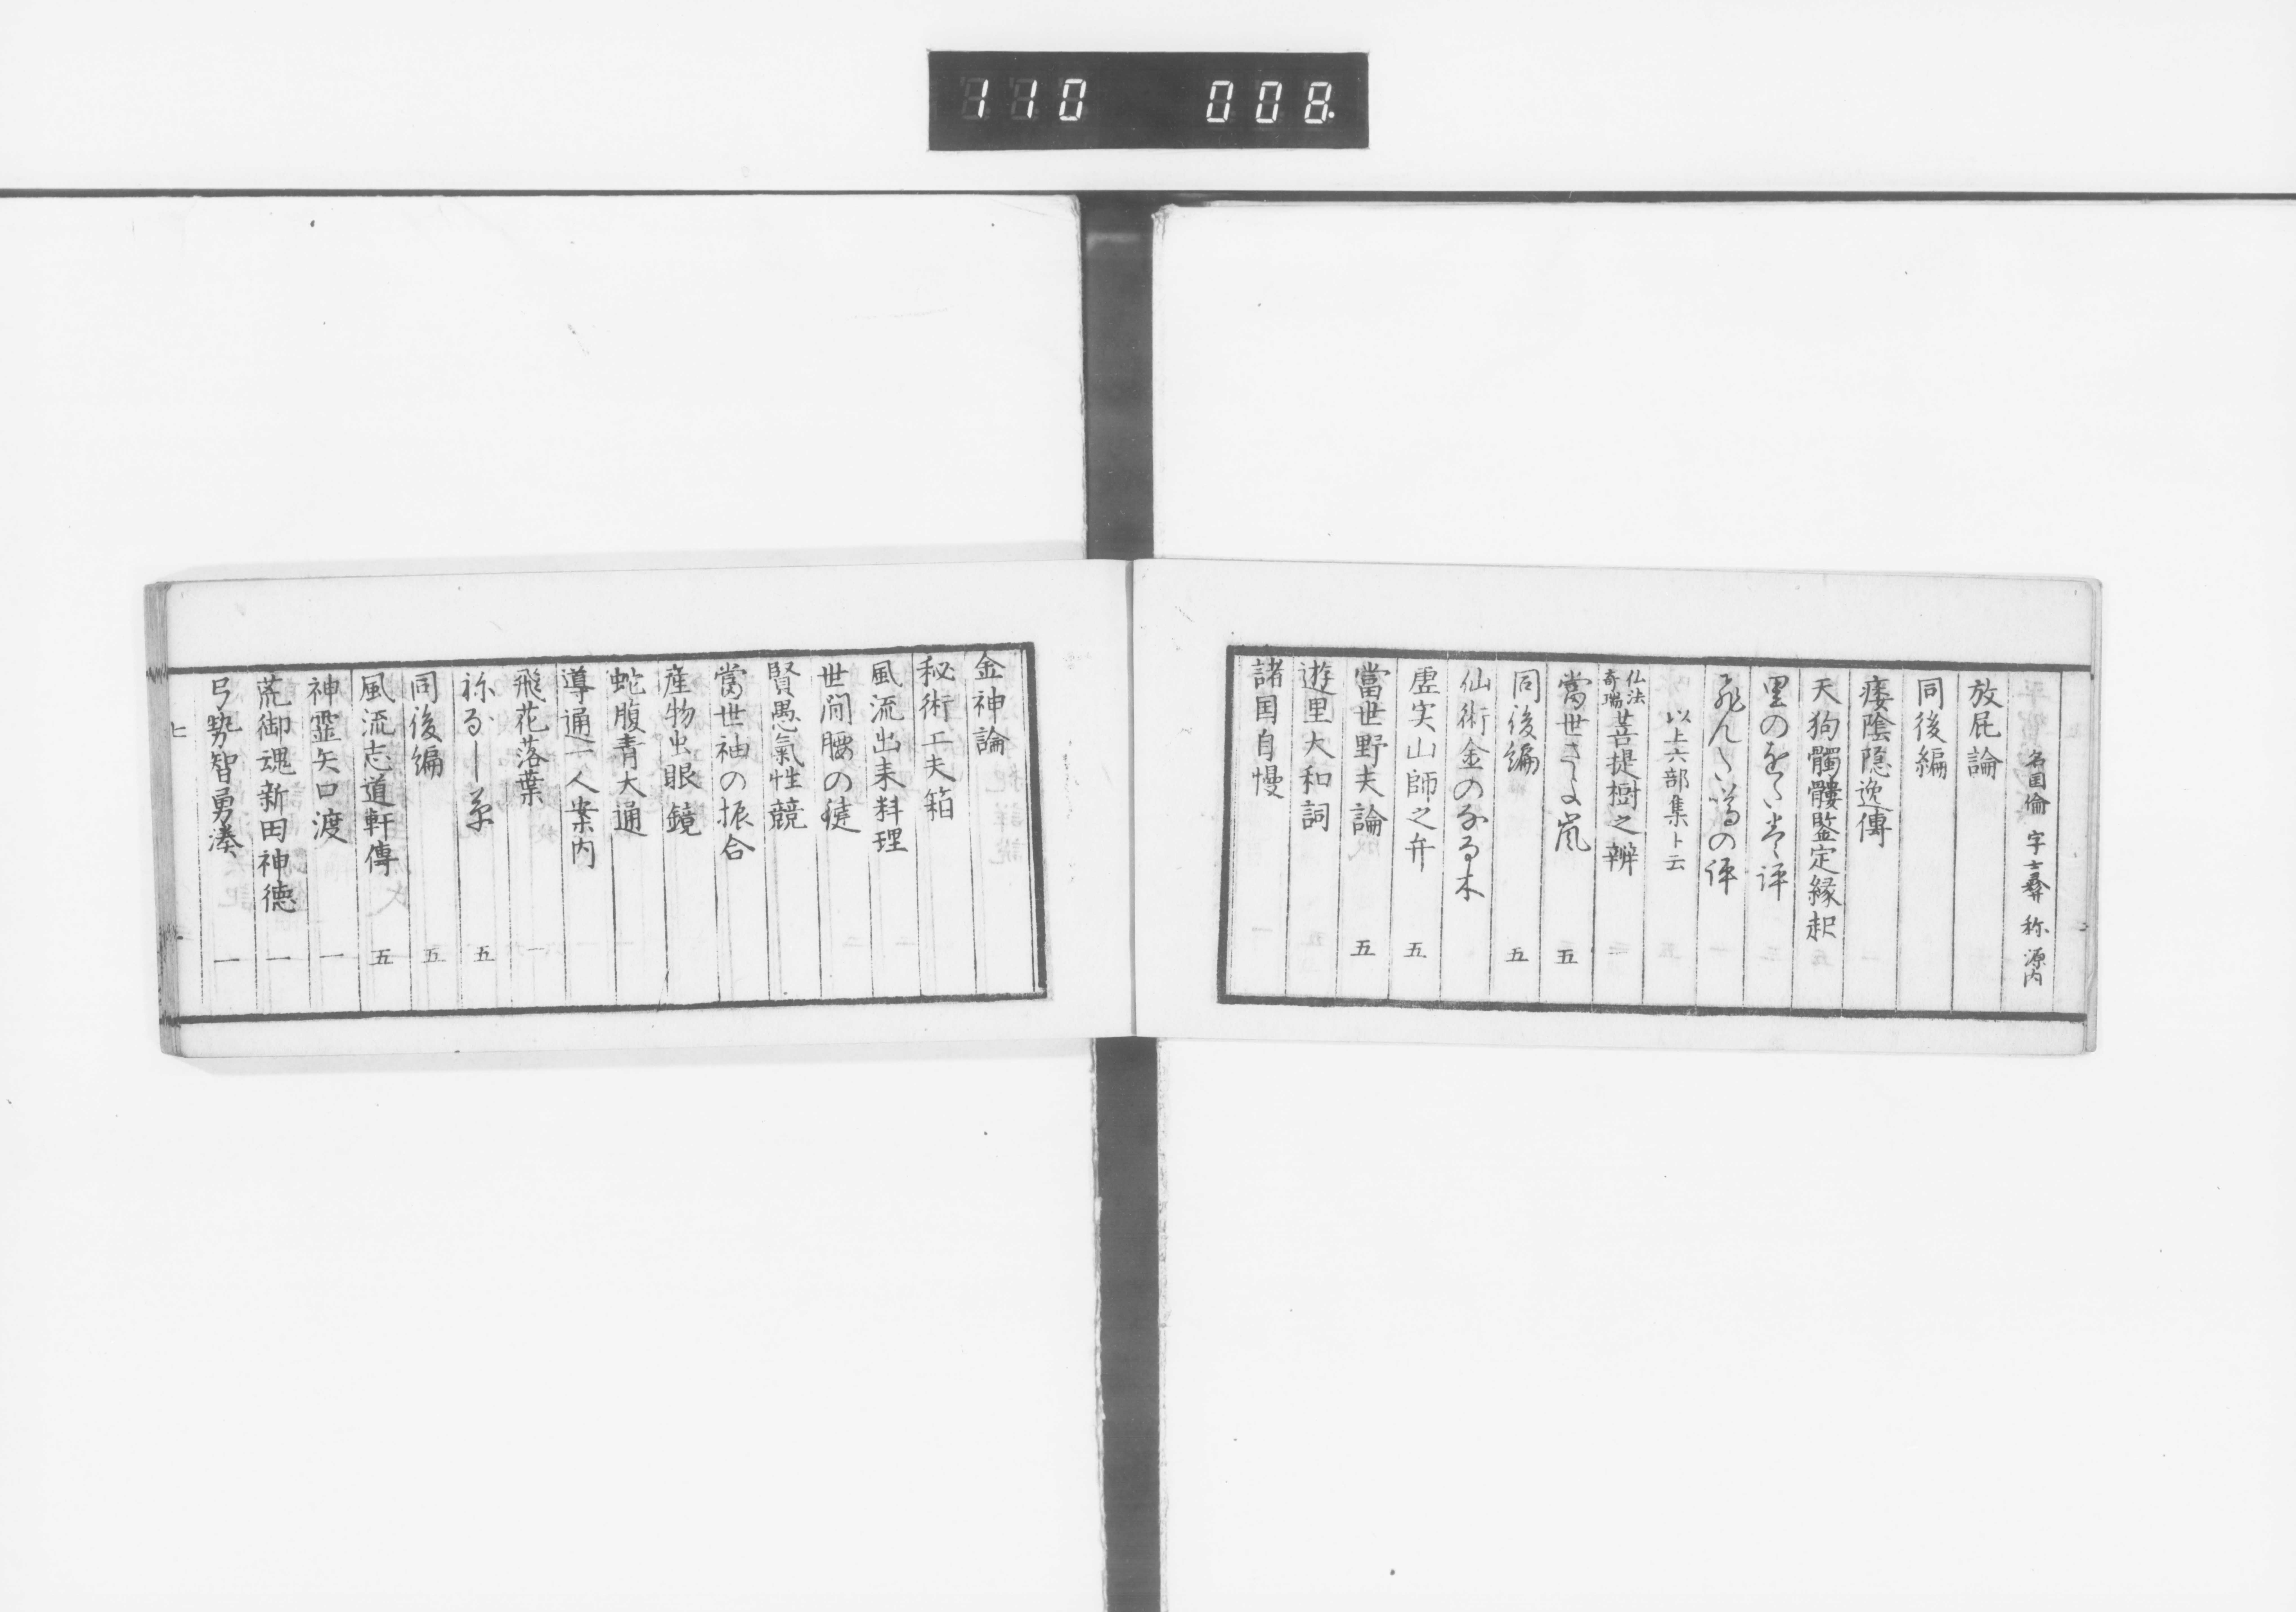 110 008
名国倫 字士彝 称源内
放屁論
同後編
痿陰隠逸傳
天狗髑髏鑒定縁起
里のをだ巻評
飛んだ噂の評
以上六部集ト云
仏法奇瑞菩提樹之辨
當世さゝ嵐 五
同後編 五
仙術金のなる木
虚実山師之弁 五
當世野夫論 五
遊里大和詞
諸国自慢
金神論
秘術工夫箱
風流出来料理
世间腰の鍵
賢愚氣性競
當世袖の振合
産物出眼鏡
蛇腹青大通
導通二人案内
飛花落葉 一
祢な し草 五
同後編 五
風流志道軒傳 五
神霊矢口渡 一
荒御魂新田神徳 一
弓勢智勇湊 一